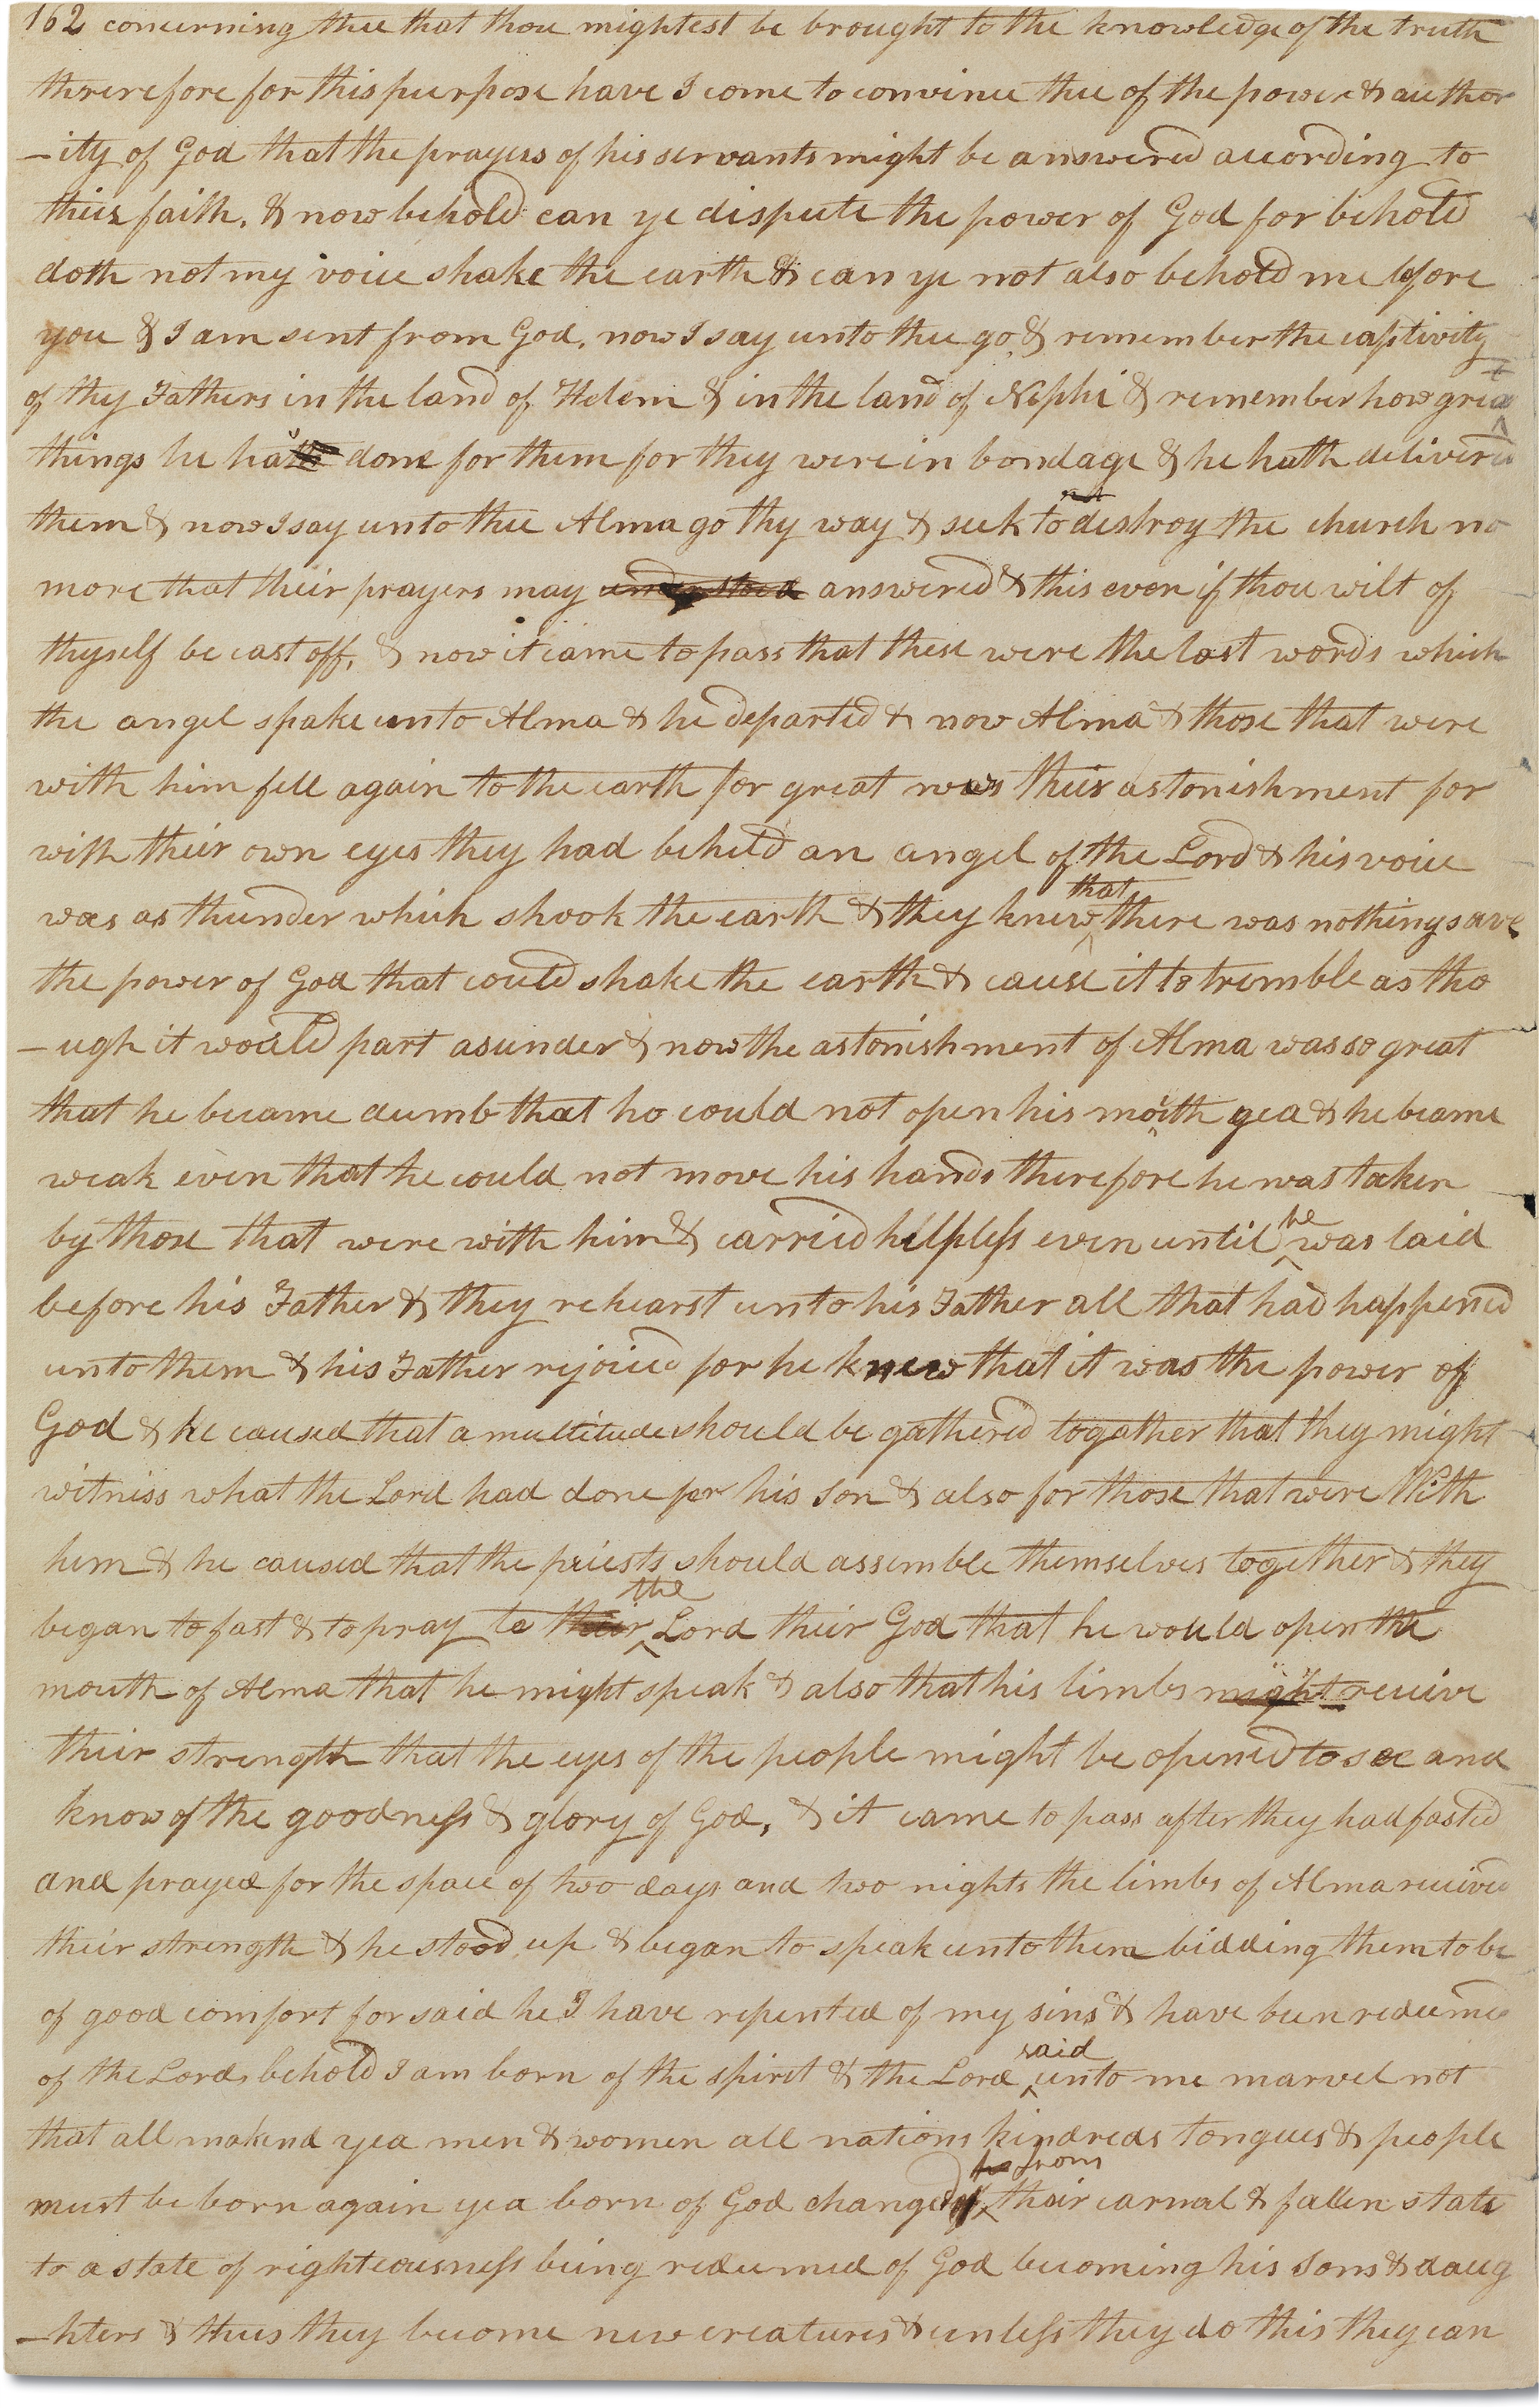 162 concerning thee that thou mightest be brought to the knowledge of the truth
therefore for this purpose have I come to convince thee of the power & author
-ity of God that the prayers of his servants might be answered according to
their faith, & now behold can ye dispute the power of God for behold
doth not my voice shake the earth & can ye not also behold me before
you & I am sent from God, now I say unto thee go & remember the captivity
of thy Fathers in the land of Helem & in the land of Nephi & remember how great
things he has done for them for they were in bondage & he hath delivered
them & now I say unto thee Alma go thy way & seek to destroy the church no
more that their prayers may understood answered & this even if thou wilt of
thyself be cast off, & now it came to pass that these were the last words which
the angel spake unto Alma & he departed & now Alma & those that were
with him fell again to the earth for great was their astonishment for
with their own eyes they had beheld an angel of the Lord & his voice
was as thunder which shook the earth & they knew that there was nothing save
the power of God that could shake the earth & cause it to tremble as tho
-ugh it would part asunder & now the astonishment of Alma was so great
that he became dumb that he could not open his mouth yea & he became
weak even that he could not move his hands therefore he was taken
by those that were with him & carried helpless even until he was laid
before his Father & they rehearst unto his Father all that had happened
unto them & his Father rejoiced for he knew that it was the power of
God & he caused that a multitude should be gathered together that they might
witness what the Lord had done for his son & also for those that were With
him & he caused that the priests should assemble themselves together & they
began to fast & to pray to their the Lord their God that he would open the
mouth of Alma that he might speak & also that his limbs might receive
their strength that the eyes of the people might be opened to see and
know of the goodness & glory of God, & it came to pass after they had fasted
and prayed for the space of two days and two nights the limbs of Alma received
their strength & he stood up & began to speak unto them bidding them to be
of good comfort for said he I have repented of my sins & have been redeemed
of the Lord, behold I am born of the spirit & the Lord said unto me marvel not
that all makind yea men & women all nations kindreds tongues & people
must be born again yea born of God changed from their carnal & fallen state
to a state of righteousness being redeemed of God becoming his sons & daug
-hters & thus they become new creatures & unless they do this they can